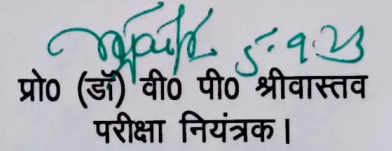 5-9-23
प्रो0 (डॉ) वी0 पी0 श्रीवास्तव
परीक्षा नियंत्रक।